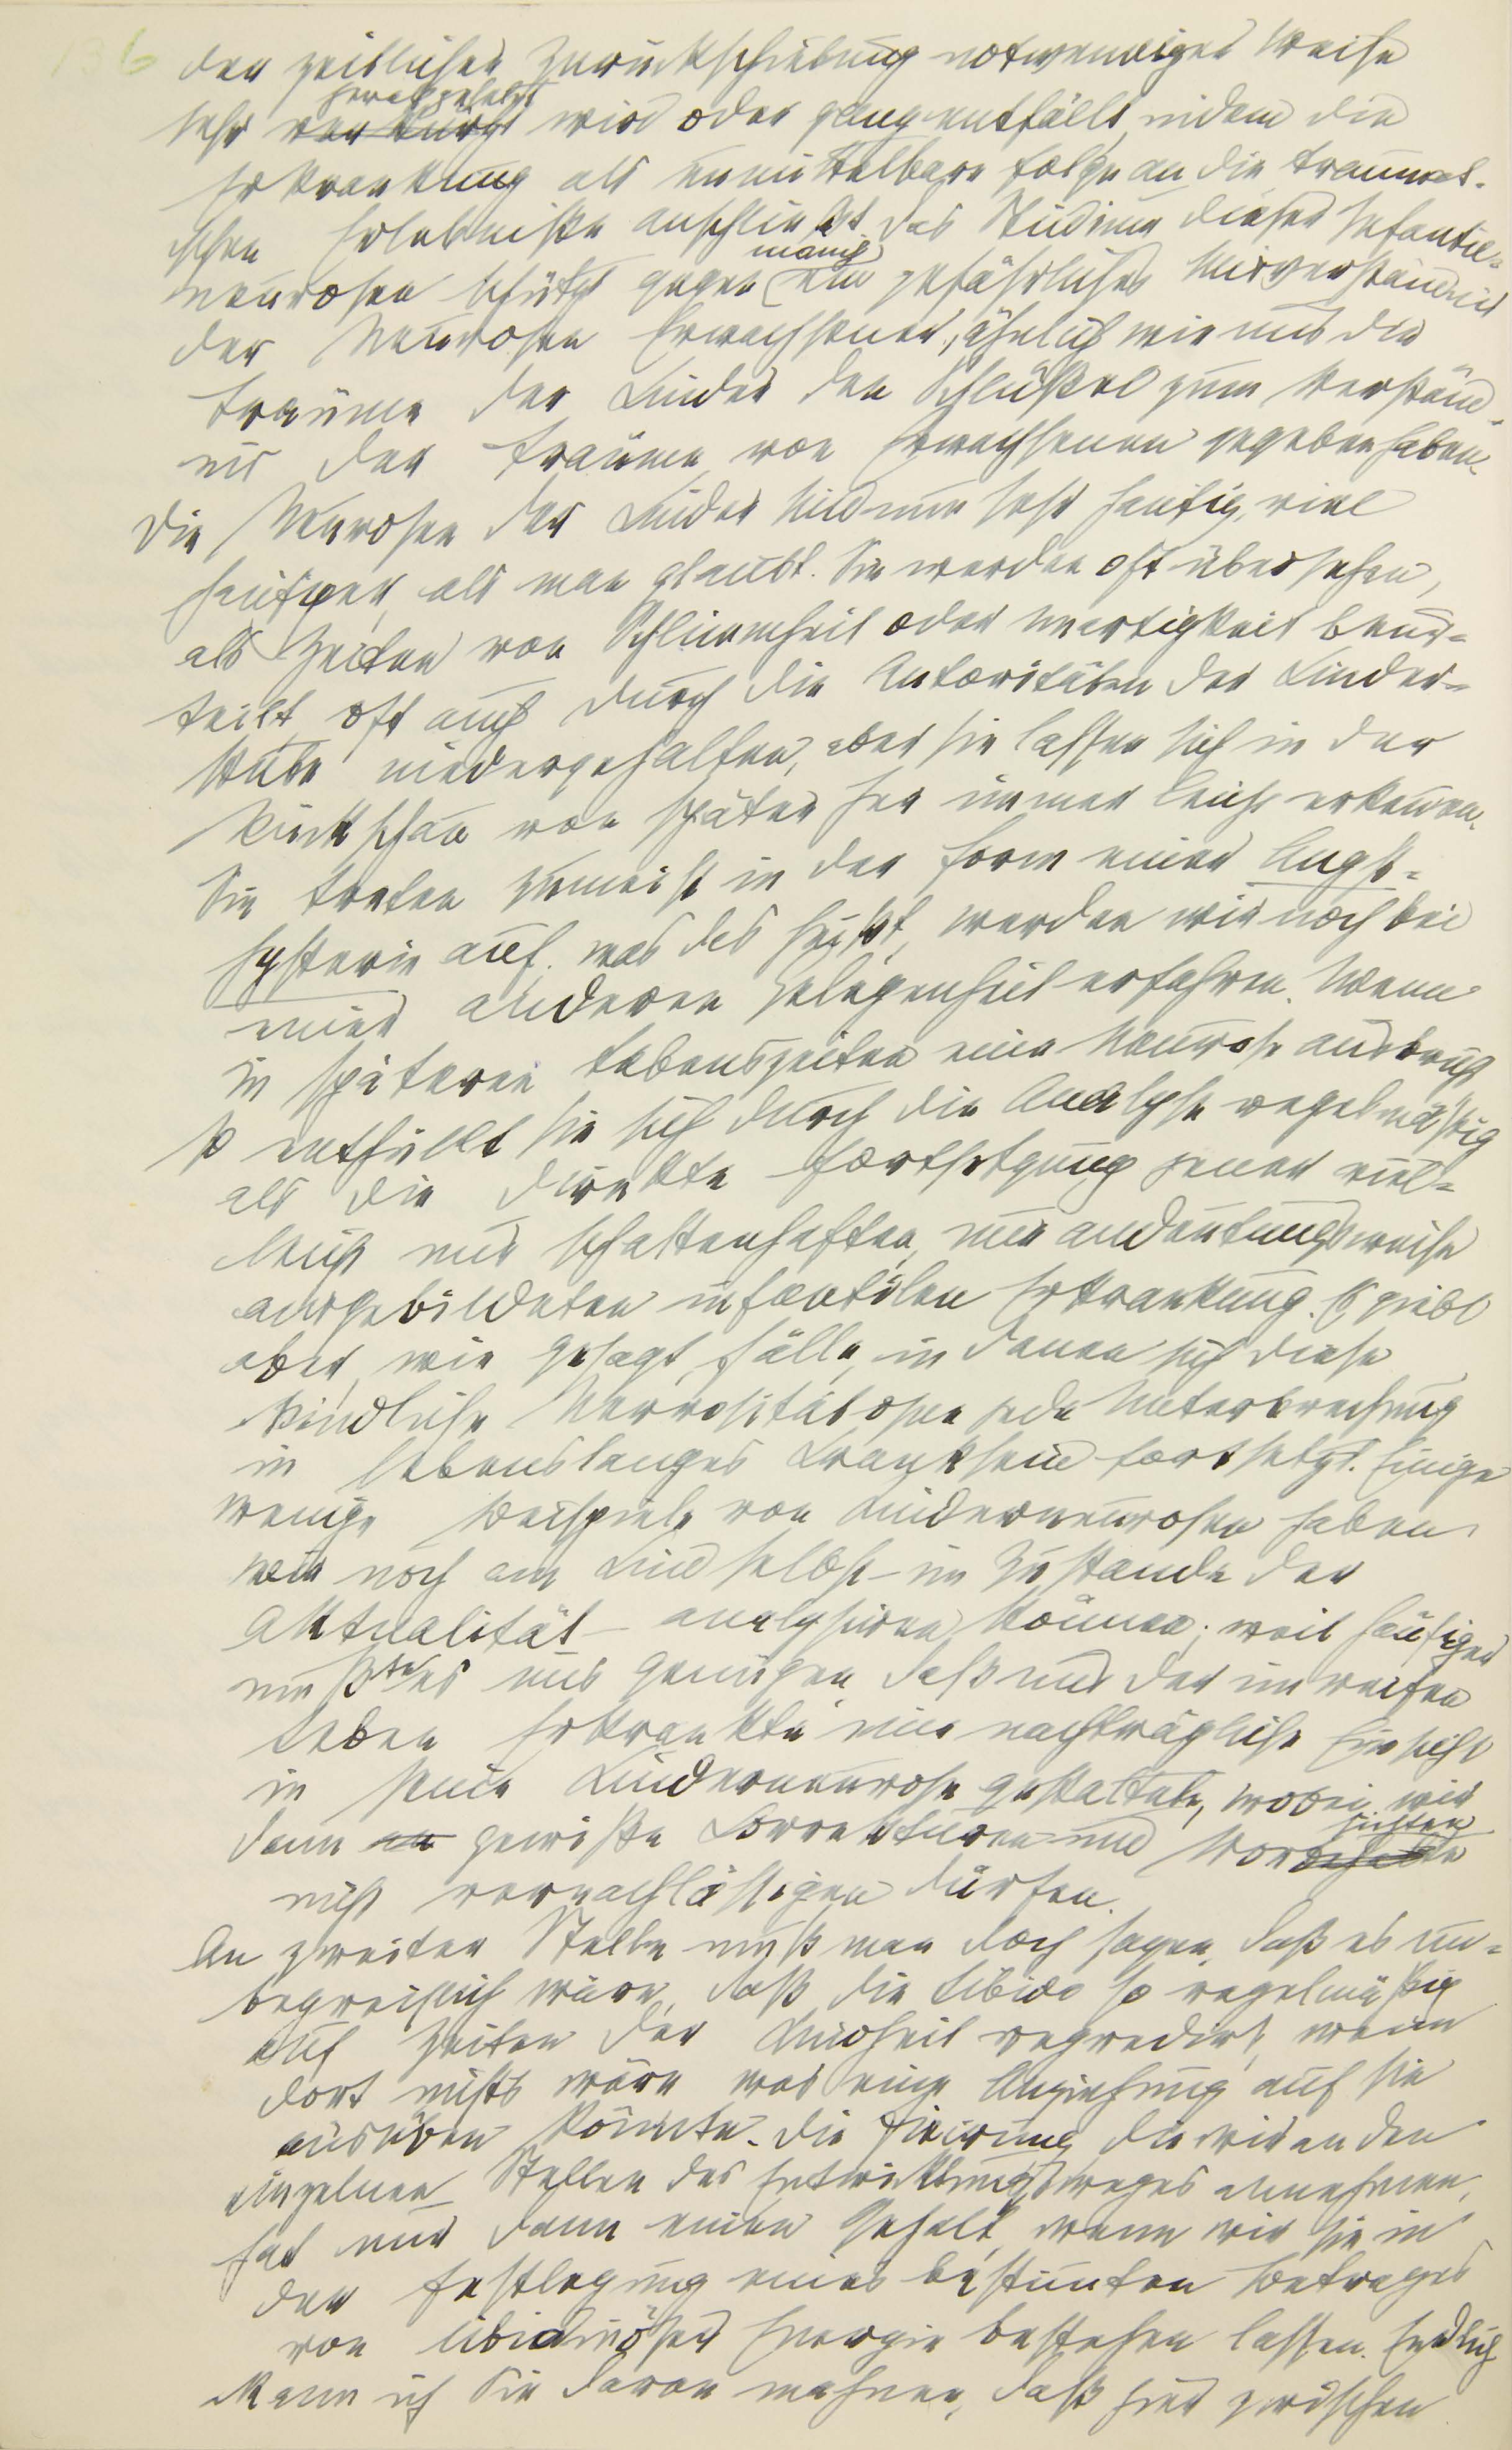 136
der zeitlichen Zurückschiebung notwendiger Weise
sehr herabgesetzt wird oder ganz entfällt, indem die
Erkrankung als unmittelbare Folge an die traumat-
ischen Erlebniße anschließt. Das Studium dieser Infantil-
neurosen schützt gegen manch ein gefährliches Misverständnis
der Neurosen Erwachsener, ähnlich wie uns die
Träume der Kinder den Schlüßel zum Verständ-
nis der Träume von Erwachsenen gegeben haben.
Die Neurosen der Kinder sind nun sehr häufig, viel
häufiger, als man glaubt. Sie werden oft übersehen,
als Zeichen von Schlimmheit oder Unartigkeit beur-
teilt, oft auch durch die Autoritäten der Kinder-
stube niedergehalten, aber sie lassen sich in der
Rückschau von später her immer leicht erkennen.
Sie treten zumeist in der Form einer Angst-
hysterie auf. Was das heißt, werden wir noch bei
einer anderen Gelegenheit erfahren. Wenn
in späteren Lebenszeiten eine Neurose ausbricht
so enthüllt sie sich durch die Analyse regelmäßig
als die direkte Fortsetzung jener viel-
leicht nur schattenhaften, nur andeutungsweise
ausgebildeten infantilen Erkrankung. Es giebt
aber, wie gesagt, Fälle, in denen sich diese
kindliche Nervosität ohne jede Unterbrechung
in lebenslanges Kranksein fortsetzt. Einige
wenige Beispiele von Kinderneurosen haben
wir noch am Kind selbst – im Zustande der
Aktualität – analysiren können; weit häufiger
mußte es uns genügen, daß uns der im reifen
Leben Erkrankte eine nachträgliche Einsicht
in seine Kinderneurose gestattete, wobei wir
dann gewiße Korrekturen und Vorsichten
nicht vernachlässigen durften.
An zweiter Stelle muß man doch sagen, daß es un-
begreiflich wäre, daß die Libido so regelmäßig
auf Zeiten der Kindheit regredirt, wenn
dort nichts wäre was eine Anziehung auf sie
ausüben könnte. Die Fixirung, die wir an den
einzelnen Stellen des Entwicklungsweges annehmen,
hat nur dann einen Gehalt, wenn wir sie in
der Festlegung eines bestimmten Betrages
von libidinöser Energie bestehen lassen. Endlich
kann ich Sie daran mahnen, daß hier zwischen